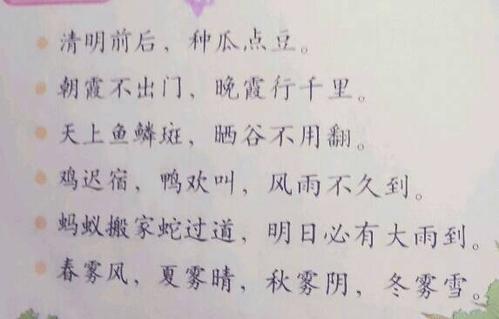 清明前后，种瓜点豆。
朝霞不出门，晚霞行千里。
天上鱼鳞斑，晒谷不用翻。
鸡迟宿，鸭欢叫，风雨不久到。
蚂蚁搬家蛇过道，明日必有大雨到。
春雾风，夏雾晴，秋雾阴，冬雾雪。